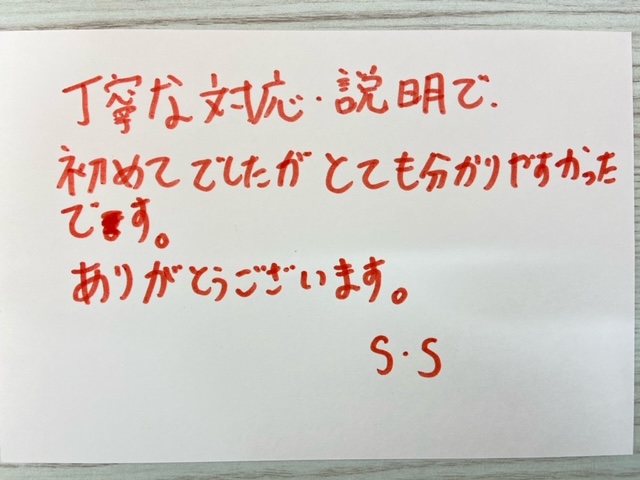 丁寧な対応・説明で、
初めてでしたがとても分かりやすかった
です。
ありがとうございます。
S・S